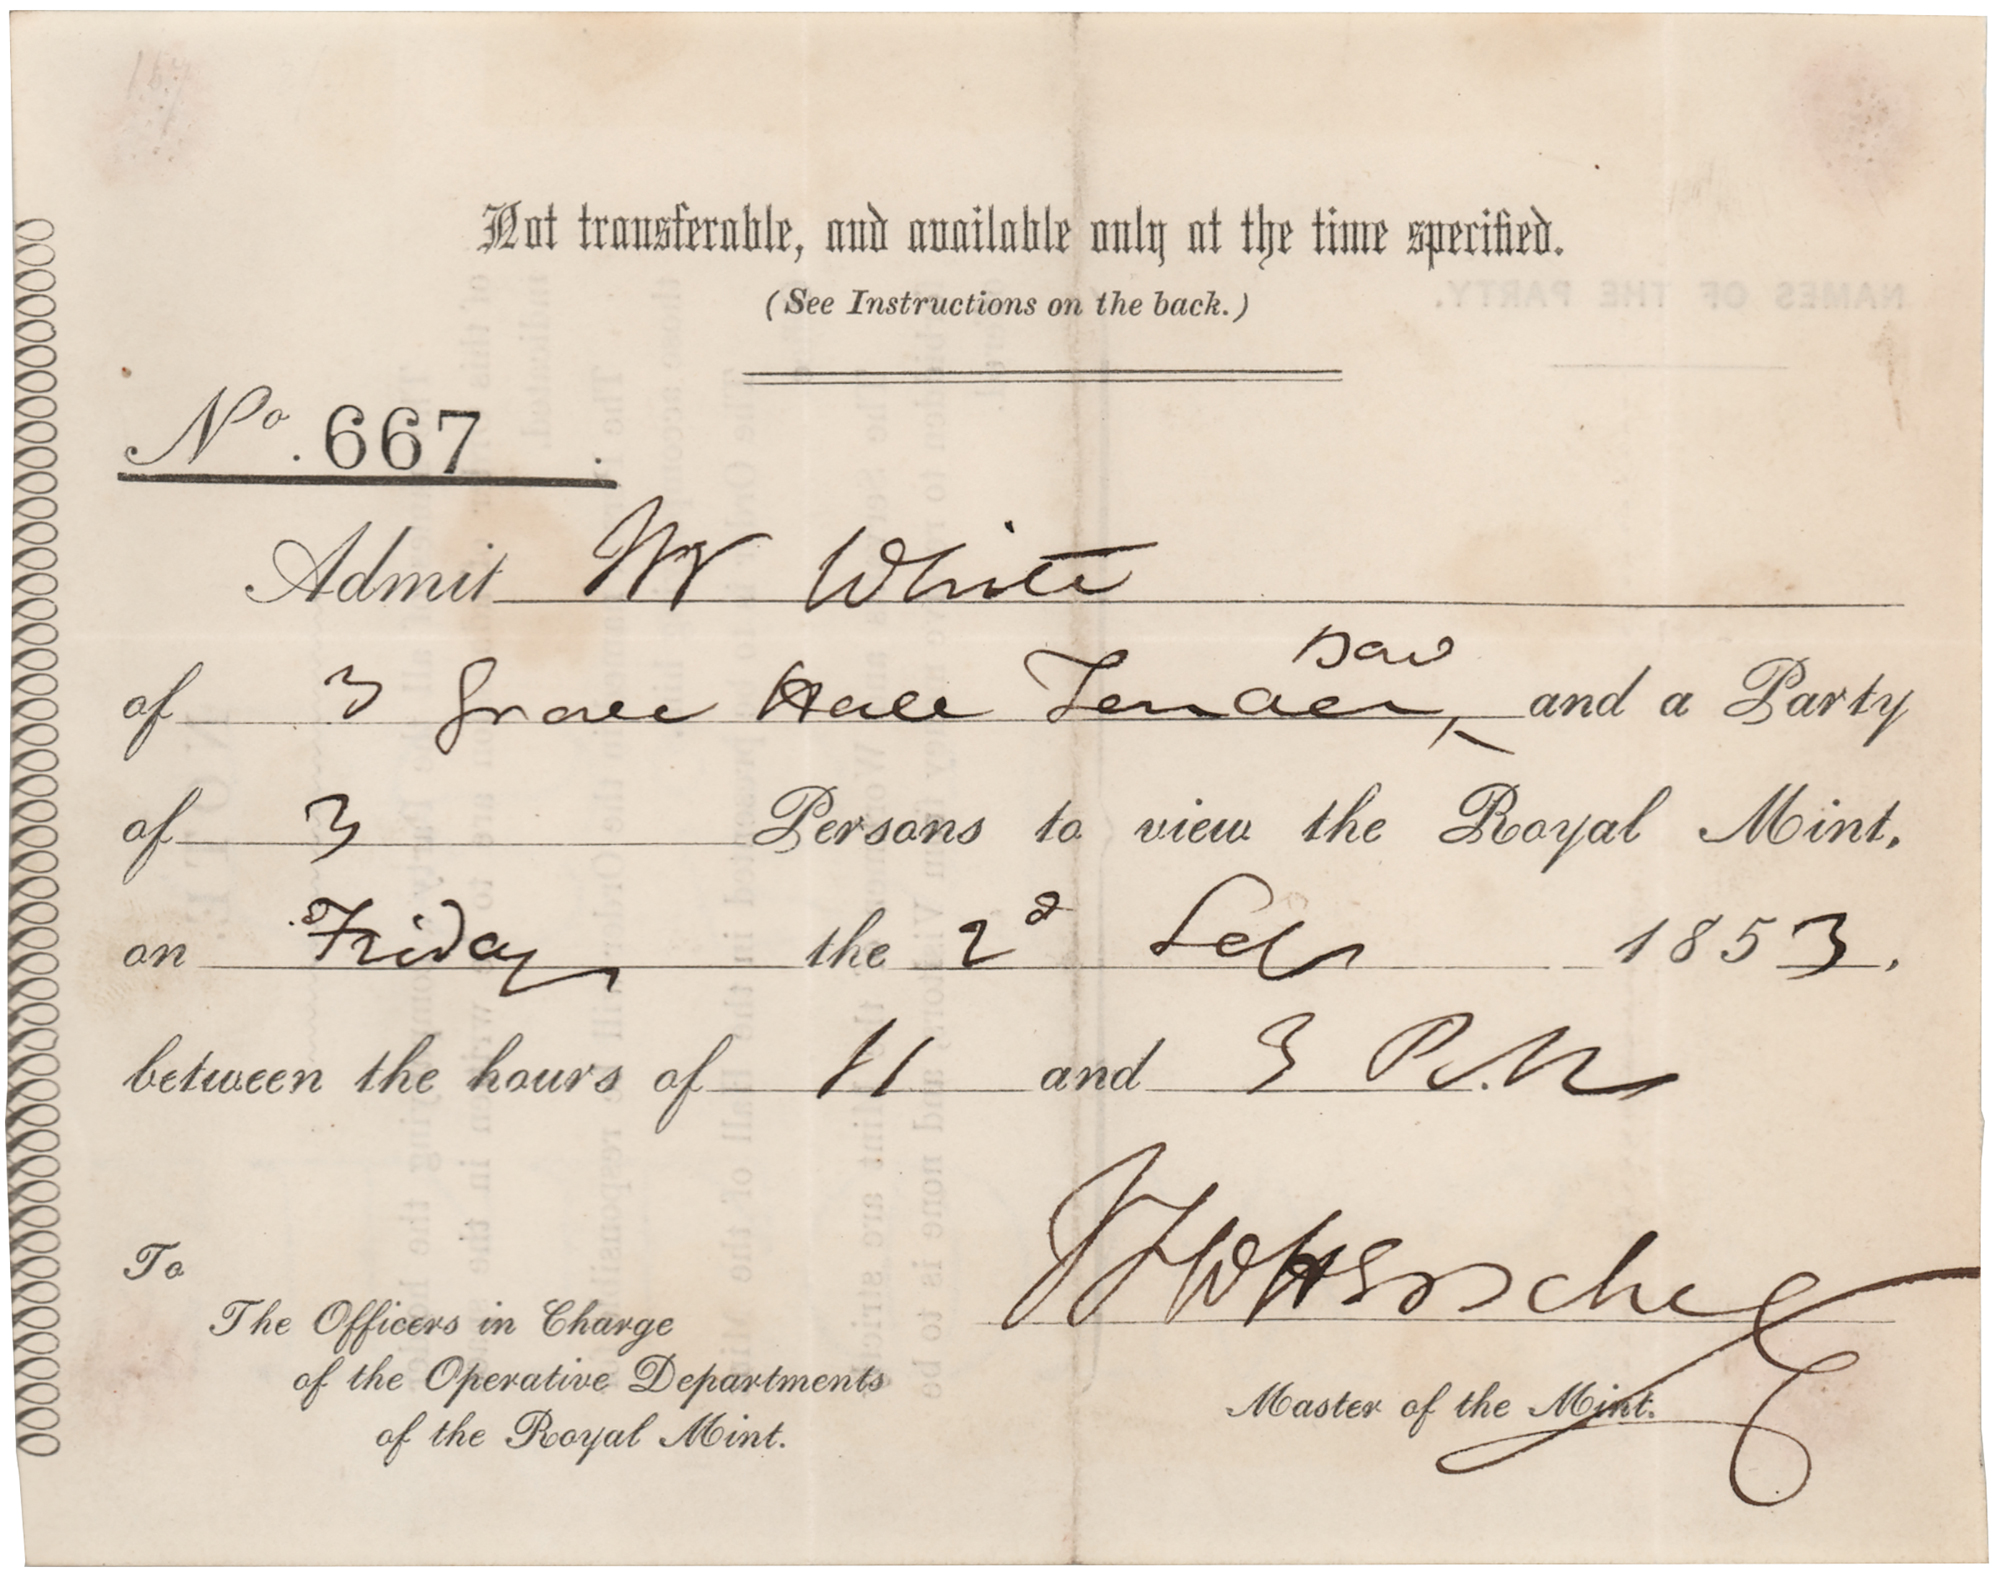 Not transferable, and available only at the time specified.
(See Instructions on the back.)
NAMES OF THE PARTY.
No. 667
Admit Mr White
of 3 Grove Hall Terrace, Bow and a Party
of 3 Persons to view the Royal Mint.
on Friday the 2d Sep 1853,
between the hours of 11 and 3 P.M
JFW Herschel
To
The Officers in Charge
of the Operative Departments
of the Royal Mint.
Master of the Mint.